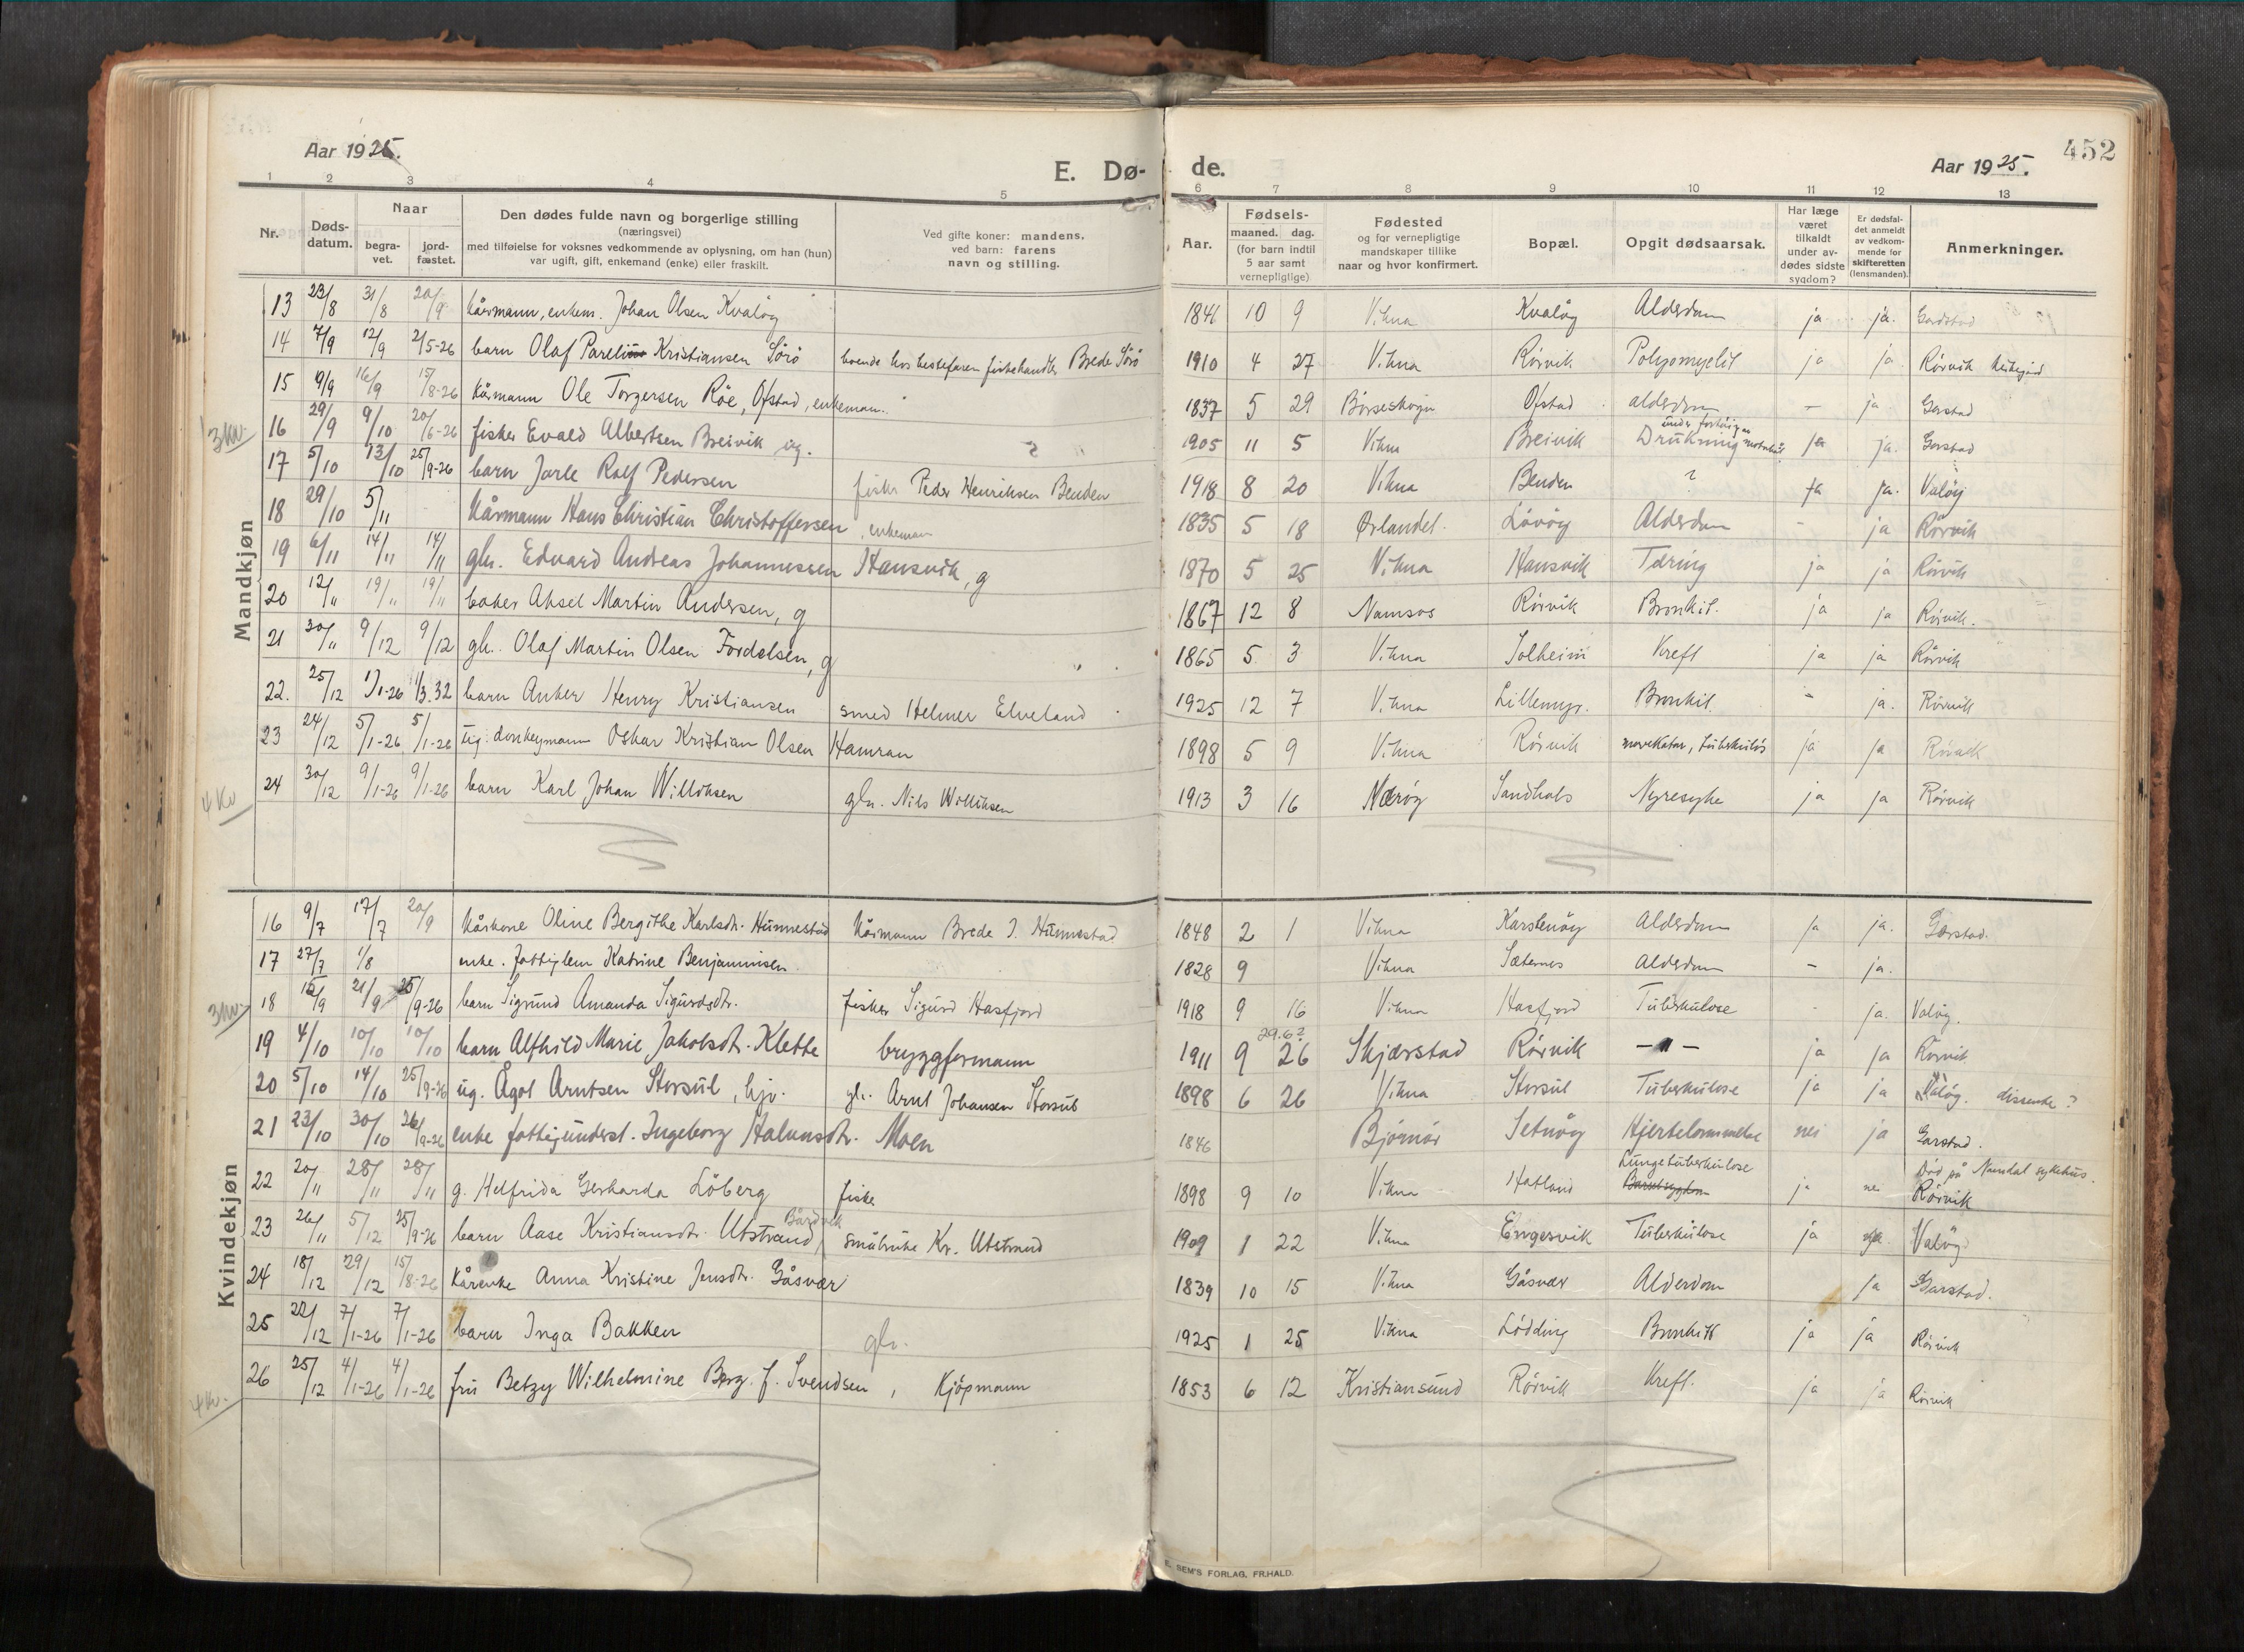 Aar 1925.
E. Dø-
de.
Aar 1925.
452
1 2 3 4 5 6 7 8 9 10 11 12 13
Nr.
Døds-
datum.
Naar
begra-
vet.
jord-
fæstet.
Den dødes fulde navn og borgerlige stilling
(næringsvei)
med tilføielse for voksnes vedkommende av oplysning, om han (hun)
var ugift, gift, enkemand (enke) eller fraskilt.
Ved gifte koner: mandens.
ved barn: farens
navn og stilling.
Aar.
Fødsels-
maaned. dag.
(for barn indtil
5 aar samt
vernepligtige)
Fødested
og for vernepligtige
mandskaper tillike
naar og hvor konfirmert.
Bopæl.
Opgit dødsaarsak.
Har læge
været
tilkaldt
under av-
dødes sidste
sygdom?
Er dødsfal-
det anmeldt
av vedkom-
mende for
skifteretten
(lensmanden).
Anmerkninger.
Mandkjøn
13 23/8 31/8 20/9 Kårmann, enkem. Johan Olsen Kvaløy 1841 10 9 Vikna Kvaløy Alderdom ja ja. Garstad
14 7/9 12/9 2/5-26 barn Olaf Parelius Kristiansen Sörö boende hos bestefaren fiskehandler Brede Sörö 1910 4 27 Vikna Rörvik Polyomyelit ja ja Rörvik kirkegård
15 9/9 16/9 15/8-26 Kårmann Ole Torgersen Röe, Ofstad, enkeman. 1837 5 29 Börseskogn Ofstad alderdom - ja Garstad
3 kv.
16 29/9 9/10 20/6-26 fisker Evald Albertsen Breivik ug. 1905 11 5 Vikna Breivik Drukning ja ja. Garstad
17 5/10 13/10 25/9-26 barn Jarle Rolf Pedersen fisker Peder Henriksen Benden 1918 8 20 Vikna Benden ? ja ja. Valöy
18 29/10 5/11 Kårmann Hans Christian Christoffersen, enkeman 1835 5 18 Ørlandet. Lövöy Alderdom - ja Rörvik
19 6/11 14/11 14/11 gbr. Edvard Andreas Johannessen Hansvik, g 1870 5 25 Vikna Hansvik Tæring ja ja Rörvik
20 12/11 19/11 19/11 baker Aksel Martin Andersen, g 1867 12 8 Namsos Rörvik Bronkit. ja ja Rörvik.
21 30/11 9/12 9/12 gbr. Olaf Martin Olsen Fordelsen, g 1865 5 3 Vikna Solheim Kreft ja ja Rörvik
22. 25/12 1/1-26 1/3.32 barn Anker Henry Kristiansen smed Helmer Elveland 1925 12 7 Vikna Lillemyr. Bronkit. - ja. Rörvik
23 24/12 5/1-26 5/1-26 ug. donkeymann Oskar Kristian Olsen Hamran 1898 5 9 Vikna Rörvik mavekatar, tuberkulös ja ja Rörvik
24 30/12 9/1-26 9/1-26 barn Karl Johan Williksen gbr. Nils Williksen 1913 3 16 Nærøy Sandhals Nyresyke ja ja Rörvik
4 kv
Kvindekjøn
16 9/7 17/7 20/9 Kårkone Oline Bergithe Karlsdtr. Hunnestad Kårmann Brede J. Hunnestad 1848 2 1 Vikna Karstenöy Alderdom ja ja. Garstad.
17 27/7 1/8 enke. fattiglem Katrine Benjaminsen 1828 9 Vikna Sæternes Alderdom - ja.
3 kv.
18 15/9 21/9 25/9-26 barn Sigrund Amanda Sigurdsdtr. fisker Sigurd Hasfjord 1918 9 16 Vikna Hasfjord Tuberkulose - ja. Valöy.
19 4/10 10/10 10/10 barn Alfhild Marie Jakobsdtr. Klette bryggformann 1911 9 26 29.6? Skjærstad Rörvik - " - ja ja Rörvik
20 5/10 14/10 25/9-26 ug. Ågot Arntsen Storsul, hjv. gbr. Arnt Johansen Storsul 1898 6 26 Vikna Storsul Tuberkulose ja ja Valöy. dissenter?
21 23/10 30/10 26/9-26 enke fattigunderst. Ingeborg Halvnsdtr. Moen 1846 Björnör Setnöy Hjertelammelse nei ja Garstad.
22 20/11 28/11 28/11 g. Helfrida Gerharda Löberg fisker 1898 9 10 Vikna Hatland Lungetuberkulose Barselsygdom ja nei Död på Namdal sykehus. Rörvik
23 26/11 5/12 25/9-26 barn Aase Kristiansdtr. Utstrand, småbruker Kr. Utstrand 1909 1 22 Vikna Engesvik Tuberkulose ja ja. Valöy
24 18/12 29/12 15/8-26 Kårenke Anna Kristine Jensdtr. Gåsvær 1839 10 15 Vikna Gåsvær Alderdom ja Garstad.
25 22/12 7/1-26 7/1-26 barn Inga Bakken gbr. 1925 1 25 Vikna Lödding Bronkitt ja ja Rörvik
26 25/12 4/1-26 4/1-26 fru Betzy Wilhelmine Berg f. Svendsen, Kjöpmann 1853 6 12 Kristiansund Rörvik Kreft. ja ja Rörvik
4 kv.
E. SEM'S FORLAG, FR.HALD.